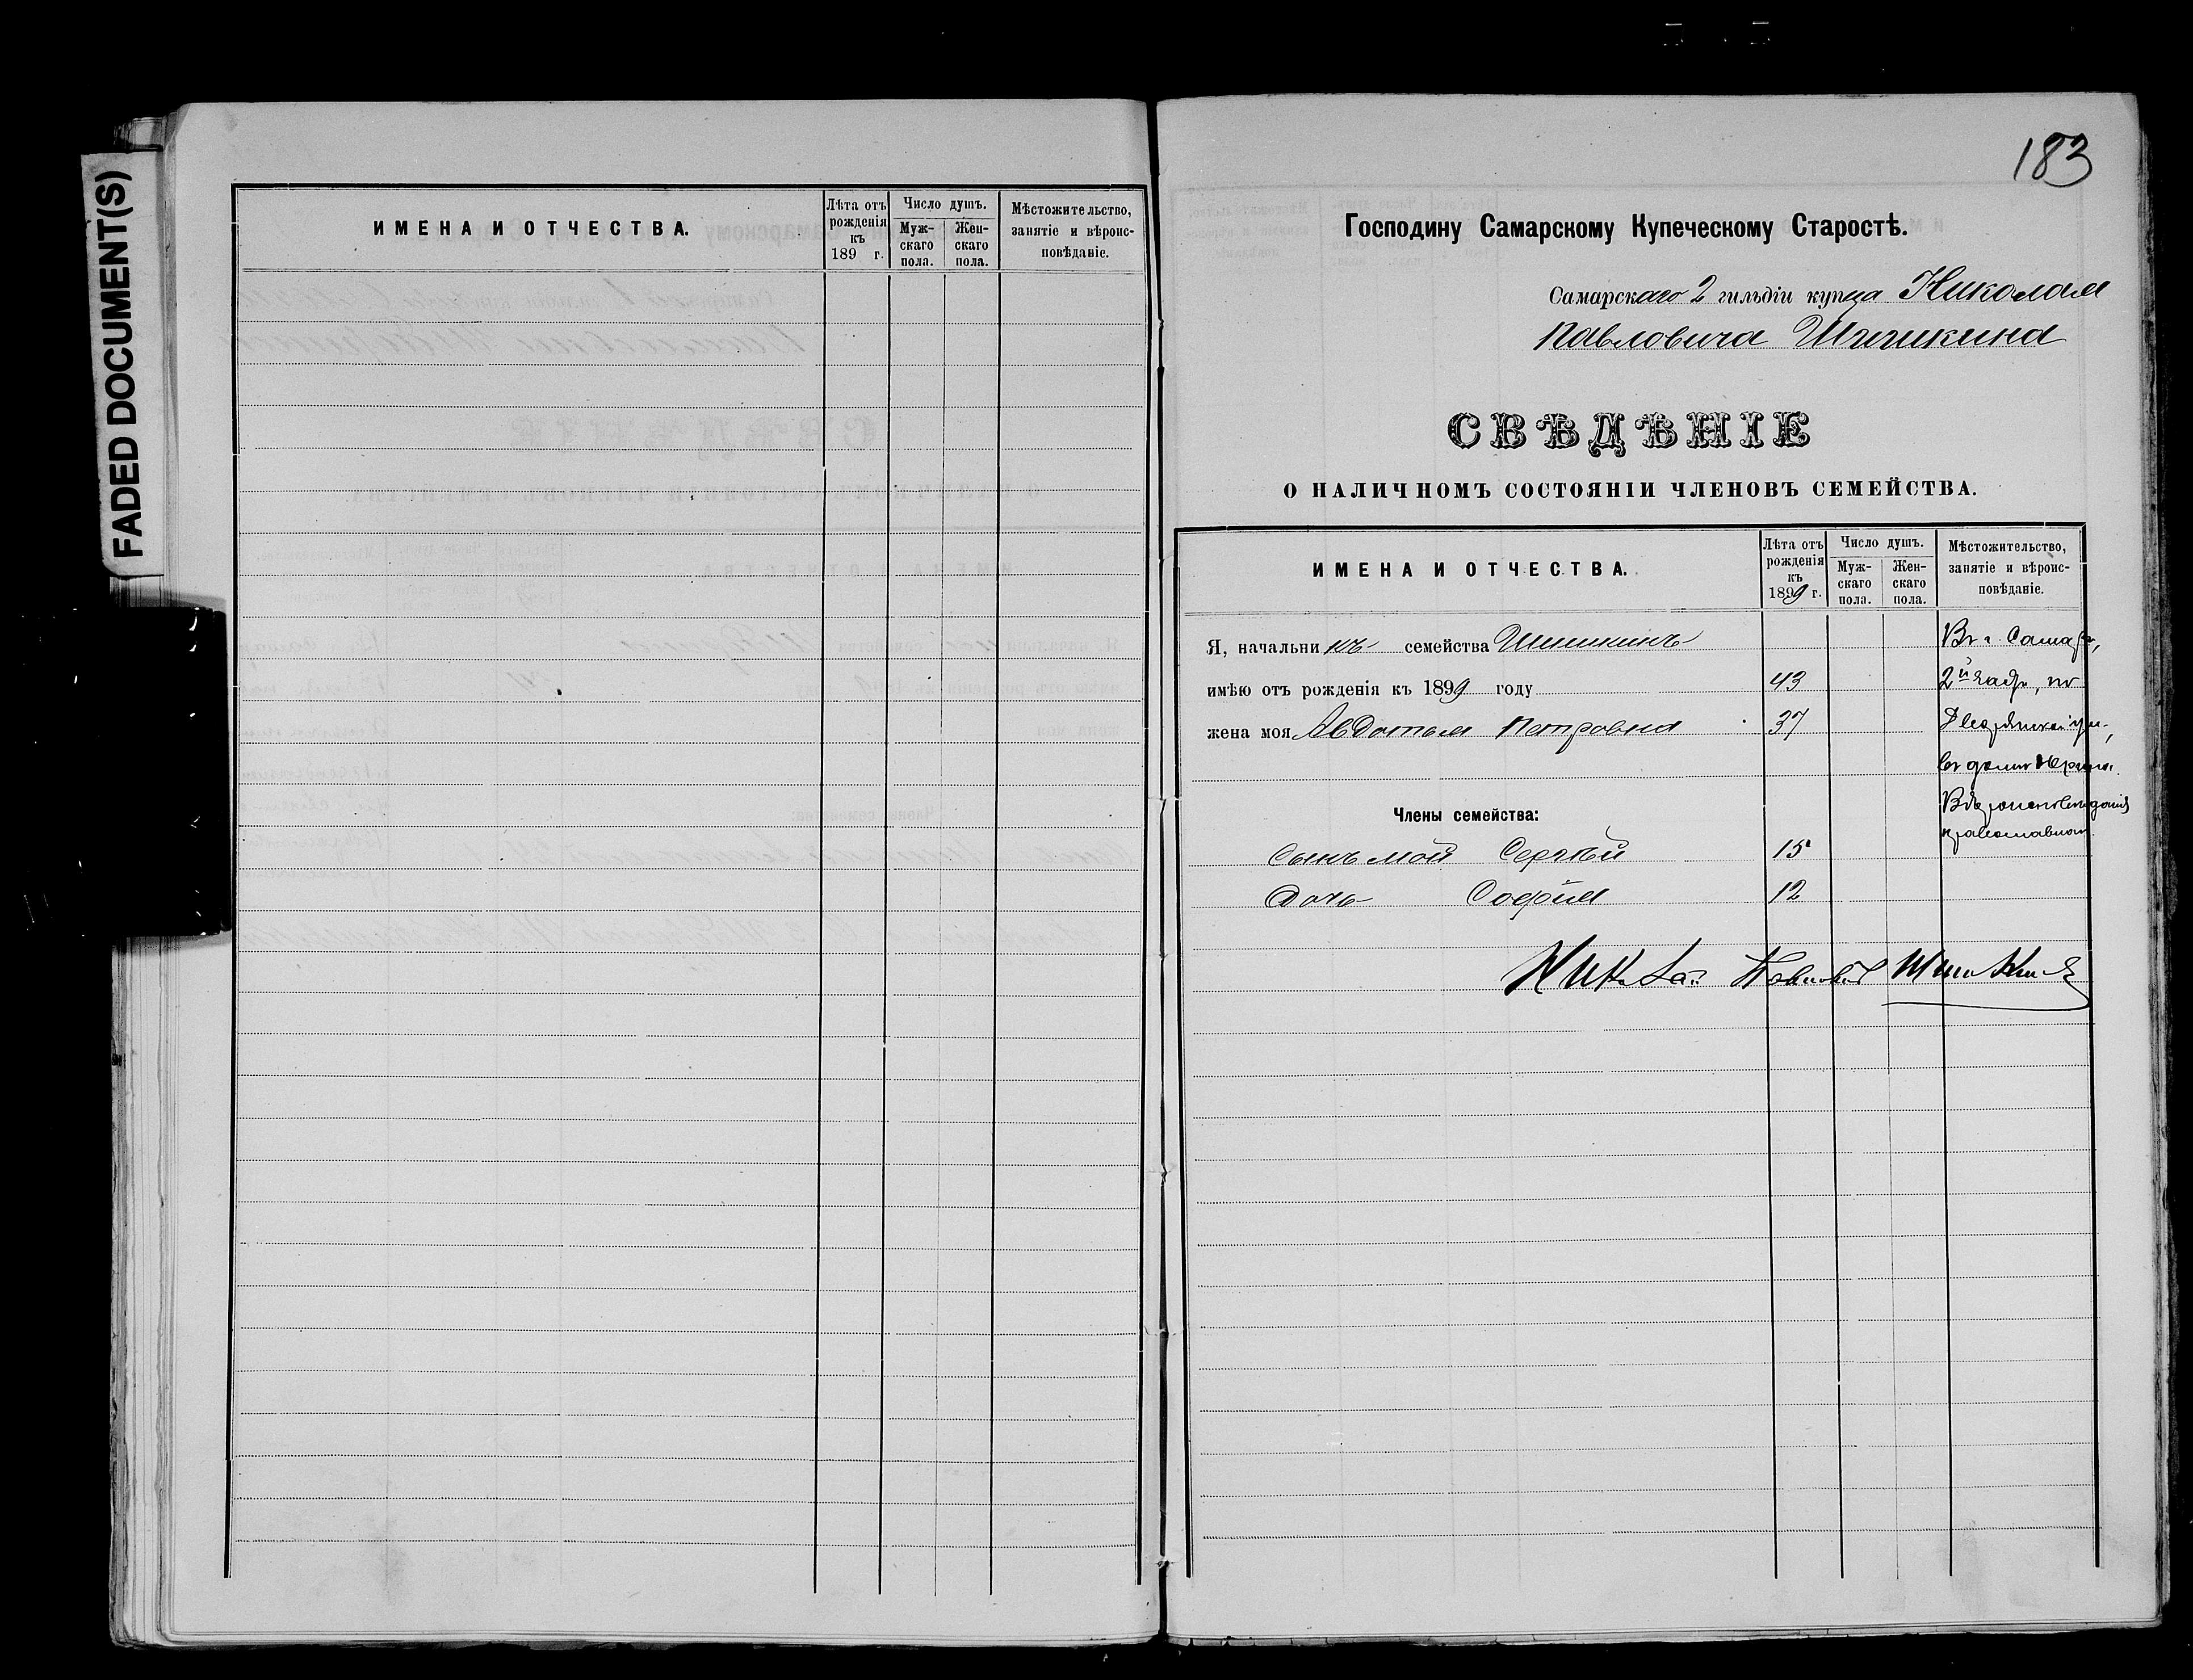 FADED DOCUMENT(S)
ИМЕНА И ОТЧЕСТВА.
Лѣта отъ рожденія къ 189 г.
Число душъ.
Муж-скаго пола.
Жен-скаго пола.
Мѣстожительство, занятіе и вѣроис-повѣданіе.
183
Господину Самарскому Купеческому Старостѣ.
Самарскаго 2 гильдіи купца Николая
Павловича Шишкина
СВѢДѢНІЕ
О НАЛИЧНОМЪ СОСТОЯНІИ ЧЛЕНОВЪ СЕМЕЙСТВА.
ИМЕНА И ОТЧЕСТВА.
Лѣта отъ рожденія къ 1899 г.
Число душъ.
Муж-скаго пола.
Жен-скаго пола.
Мѣстожительство, занятіе и вѣроис-повѣданіе.
Я, начальникъ семейства Шишкинъ
Въ г. Самарѣ,
имѣю отъ рожденія къ 1899 году 43
2й части, по
жена моя Авдотья Петровна 37
Дворянской ул.,
въ домѣ
Вѣроисповѣданія
православнаго.
Члены семейства:
Сынъ мой Сергѣй 15
Дочь Софія 12
Николай Павловичъ Шишкинъ